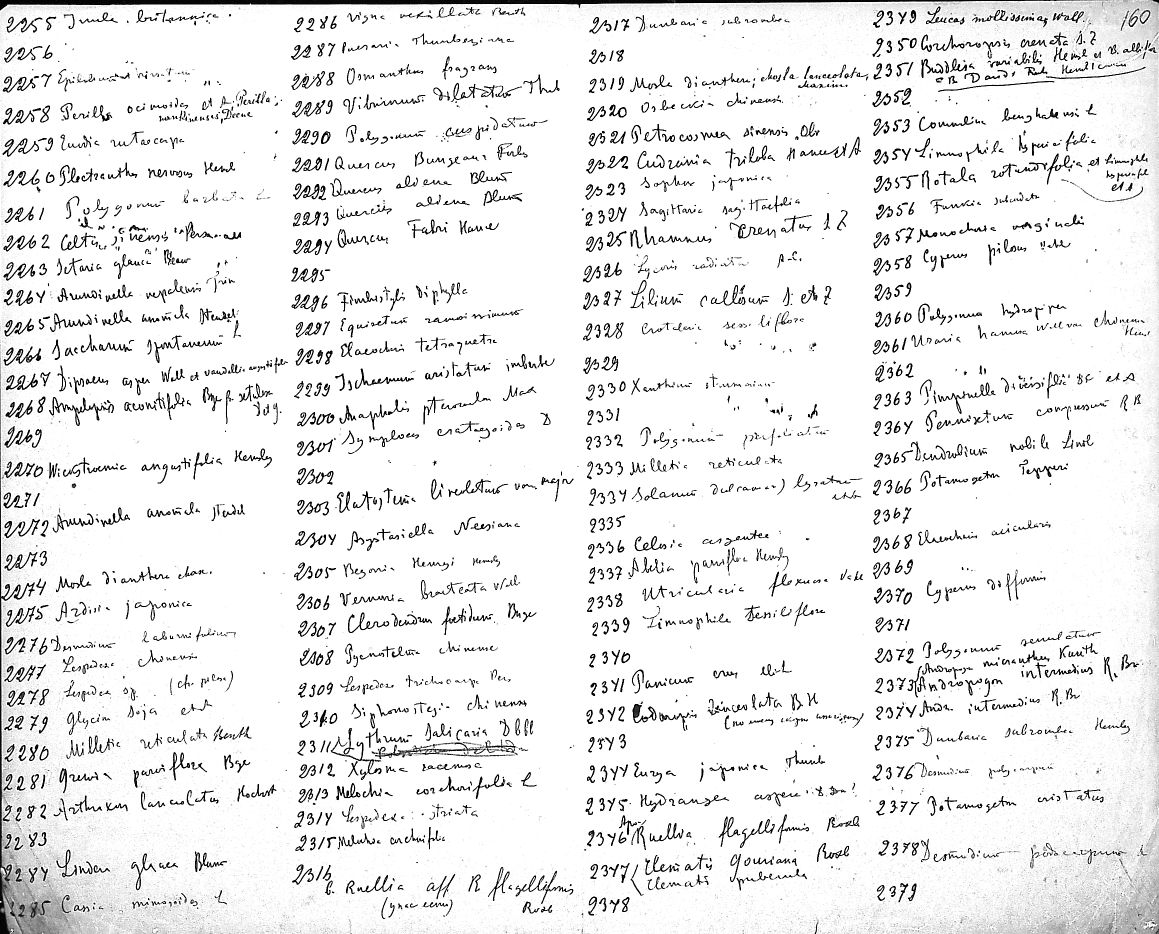 160
2255 Inula britannica.
2256
2257 Epilobium
2258 Perilla ocimoides et
nankinensis, Decne
2259 Evodia rutaecarpa
2260 Plectranthus nervosus Hemsl
2261 Polygonum barbata L
2262 Celtis sinensis Persoon
2263 Setaria glauca Beauv
2264 Arundinella nepalensis Trin
2265 Arundinella anomala Steudel
2266 Saccharum spontaneum L
2267 Dipsacus asper Wall et
2268 Ampelopsis aconitifolia Bge
2269
2270 Wickstroemia angustifolia Hemsley
2271
2272 Arundinella anomala Steudel
2273
2274 Mosla dianthera
2275 Ardisia japonica
2276 Desmodium laburnifolium
2277 Lespedeza chinensis
2278 Lespedeza sp.
2279 Glycine Soja et
2280 Milletia reticulata Benth
2281 Grewia parviflora Bge
2282 Arthraxon lanceolatus Hochst
2283
2284 Lindera glauca Blum
2285 Cassia mimosoides L
2286 Vigna vexillata Benth
2287 Pueraria Thunbergiana
2288 Osmanthus fragrans
2289 Viburnum dilatatum Thunb
2290 Polygonum cuspidatum
2291 Quercus Bungeana Forbs
2292 Quercus aliena Blum
2293 Quercus aliena Blum
2294 Quercus Fabri Hance
2295
2296 Fimbristylis diphylla
2297 Equisetum ramosissimum
2298 Elaeocharis tetraquetra
2299 Ischaemum aristatum imberbe
2300 Anaphalis pterocaula Max
2301 Symplocos crataegoides D
2302
2303 Elatostema lineolatum var major
2304 Asystasiella Neesiana
2305 Begonia Henryi Hemsley
2306 Vernonia bracteata Wall
2307 Clerodendron foetidum Bnge
2308 Pycnostelma chinense
2309 Lespedeza trichocarpa Pers
2310 Siphonostegia chinensis
2311 Lythrum Salicaria
2312 Xylosma racemosa
2313 Melochia corchorifolia L
2314 Lespedeza striata
2315 Melochia corchorifolia
2316
6. Ruellia aff R flagelliformis
Roxb
2317 Dunbaria subrombea
2318
2319 Mosla dianthera; Mosla lanceolata,
Maxim
2320 Osbeckia chinensis
2321 Petrocosmea sinensis Olv
2322 Cudrania triloba Hance
2323 Sophora japonica
2324 Sagittaria sagittaefolia
2325 Rhamnus crenatus S Z
2326 Lycoris radiata
2327 Lilium callosum S. et Z
2328 Crotalaria sessiliflora
2329
2330 Xanthium strumarium
2331 " "
2332 Polygonum perfoliatum
2333 Milletia reticulata
2334 Solanum dulcamara lyratum
2335
2336 Celosia argentea
2337 Abelia parviflora Hemsley
2338 Utricularia flexuosa Vahl
2339 Limnophila sessiliflora
2340
2341 Panicum crus
2342 Codonopsis lanceolata B H
2343
2344 Eurya japonica Thunb
2345 Hydrangea aspera
2346 Ruellia flagelliformis Roxb
2347 Clematis Gouriana Roxb
Clematis puberula
2348
2349 Leucas mollissima Wall
2350 Corchoropsis crenata S. Z
2351 Buddleia variabilis Hemsl et B. albiflora
2352
2353 Commelina benghalensis L
2354 Limnophila hyssopifolia
2355 Rotala rotundifolia et Limnophila
2356 Funkia subcordata
2357 Monochoria vaginalis
2358 Cyperus pilosus Vahl
2359
2360 Polygonum hydropiper
2361 Uraria hamosa Wall var chinensis
Hemsl
2362 " "
2363 Pimpinella diversifolia DC
2364 Pennisetum compressum R B
2365 Dendrobium nobile Lindl
2366 Potamogeton Tepperi
2367
2368 Elaeocharis acicularis
2369
2370 Cyperus difformis
2371
2372 Polygonum
(Andropogon micranthus Kunth
2373 Andropogon intermedius R. Br.
2374 Andr intermedius R. Br
2375 Dunbaria subrombea Hemsley
2376 Desmodium polycarpum
2377 Potamogeton cristatus
2378 Desmodium podocarpum
2379